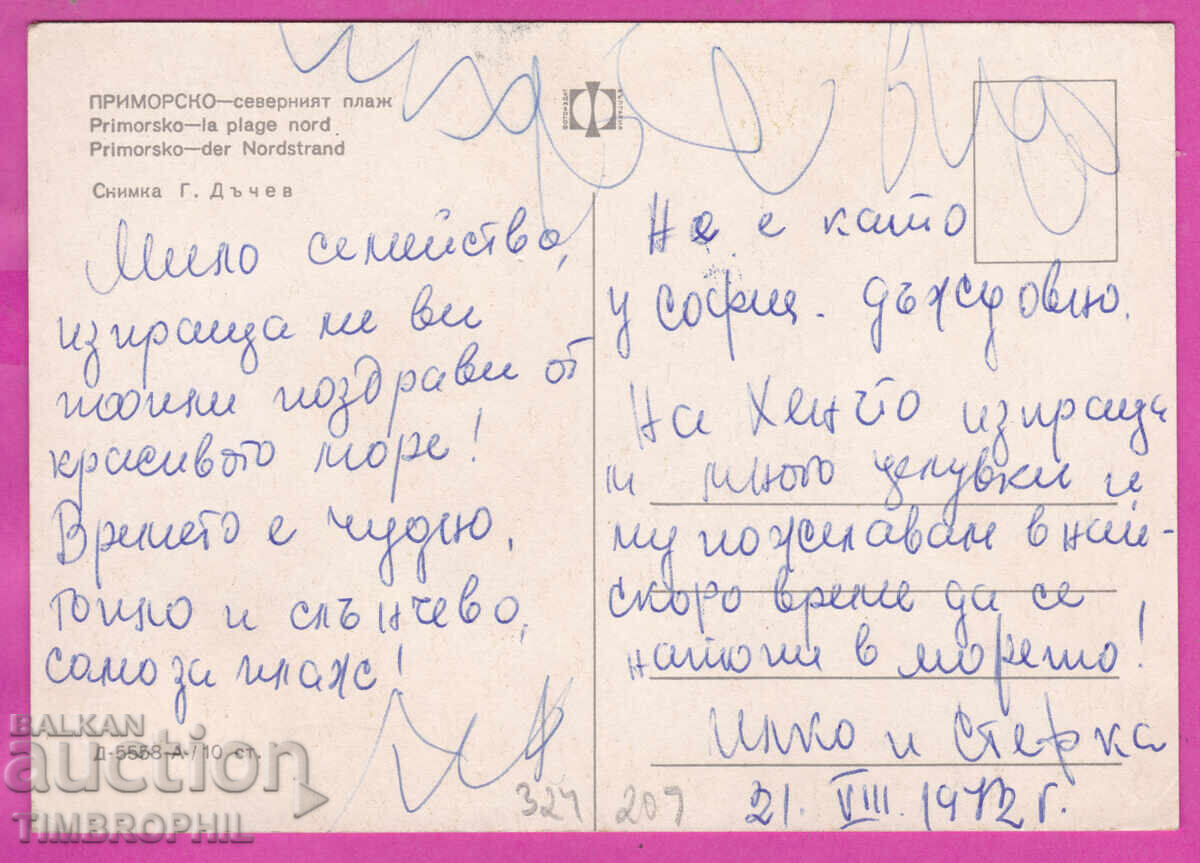 ПРИМОРСКО—северният плаж
Primorsko—la plage nord
Primorsko—der Nordstrand
Снимка Г. Дъчев
ФОТОИЗДАТ
БЪЛГАРИЯ
Мило семейство,
изпраща ме ви
топли поздрави от
красивото море!
Времето е чудно,
топло и слънчево,
само за плаж!
Д-5558-А-/10 ст.
Не е като
у София. дъждовно.
На Хенчо изпраща
м много целувки и
му пожелавам в най-
скоро време да се
натопи в морето!
Илко и Стефка
21. VIII. 1972 г.
324
207
BALKAN
auction
TIMBROPHIL